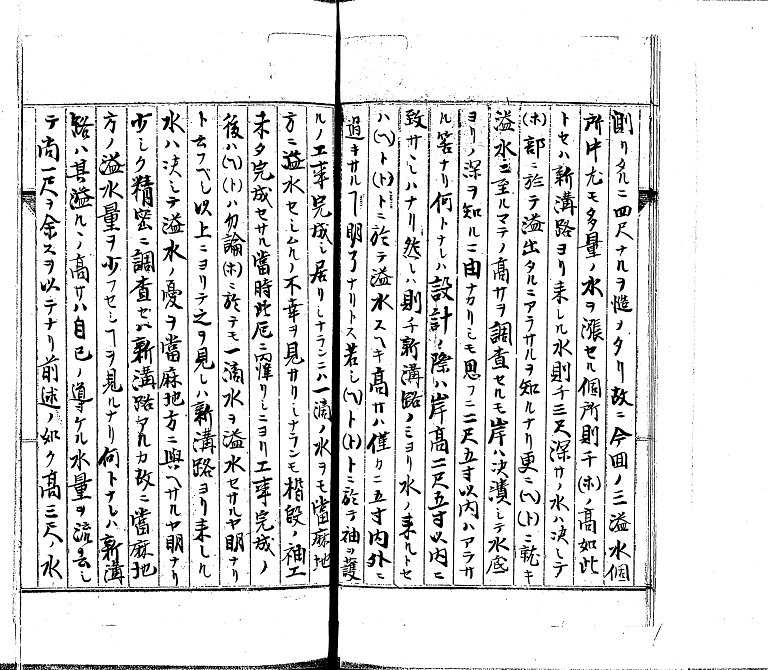 測リタルニ四尺ナルヲ慥ノタリ故ニ今回ノ三溢水個
所中尤モ多量ノ水ヲ漲セル個所則チ(ホ)ノ高如此
トセハ新溝路ヨリ来レル水則チ三尺深サノ水ハ決シテ
(ホ)部ニ於テ溢出タルニアラサルヲ知ルナリ更ニ(ヘ)(ト)ニ就キ
溢水ニ至ルマテノ高サヲ調査セルモ岸ハ決潰シテ水底
ヨリノ深ヲ知ルニ由ナカリシモ思フニ二尺五寸以内ハアラサ
ル筈ナリ何トナレハ設計ノ際ハ岸高二尺五寸以内ニ
致サヽレハナリ然レハ則チ新溝路ノミヨリ水ノ来ルトセ
ハ(ヘ)ト(ト)トニ於テ溢水スヘキ高サハ僅カニ五寸内外ニ
過キサルヿ明了ナリトス若シ(ヘ)ト(ト)トニ於テ袖ヲ護
ルノ工事完成シ居リシナランニハ一滴ノ水ヲモ當麻地
方ニ溢水セシムルノ不幸ヲ見サリシナランモ階段ノ袖工
未タ完成セサル當時此厄ニ罹リシニヨリ工事完成ノ
後ハ(ヘ)(ト)ハ勿論(ホ)ニ於テモ一滴水ヲ溢水セサルヤ明ナリ
ト云フヘシ以上ニヨリテ之ヲ見レハ新溝路ヨリ来レル
水ハ決シテ溢水ノ憂ヲ當麻地方ニ與ヘサルヤ明ナリ
少シク精密ニ調査セハ新溝路アルカ故ニ當麻地
方ノ溢水量ヲ少フセシヿヲ見ルナリ何トナレハ新溝
路ハ其溢ルヽノ高サハ自己ノ導ケル水量ヲ流去シ
テ尚一尺ヲ余スヲ以テナリ前述ノ如ク高三尺ノ水